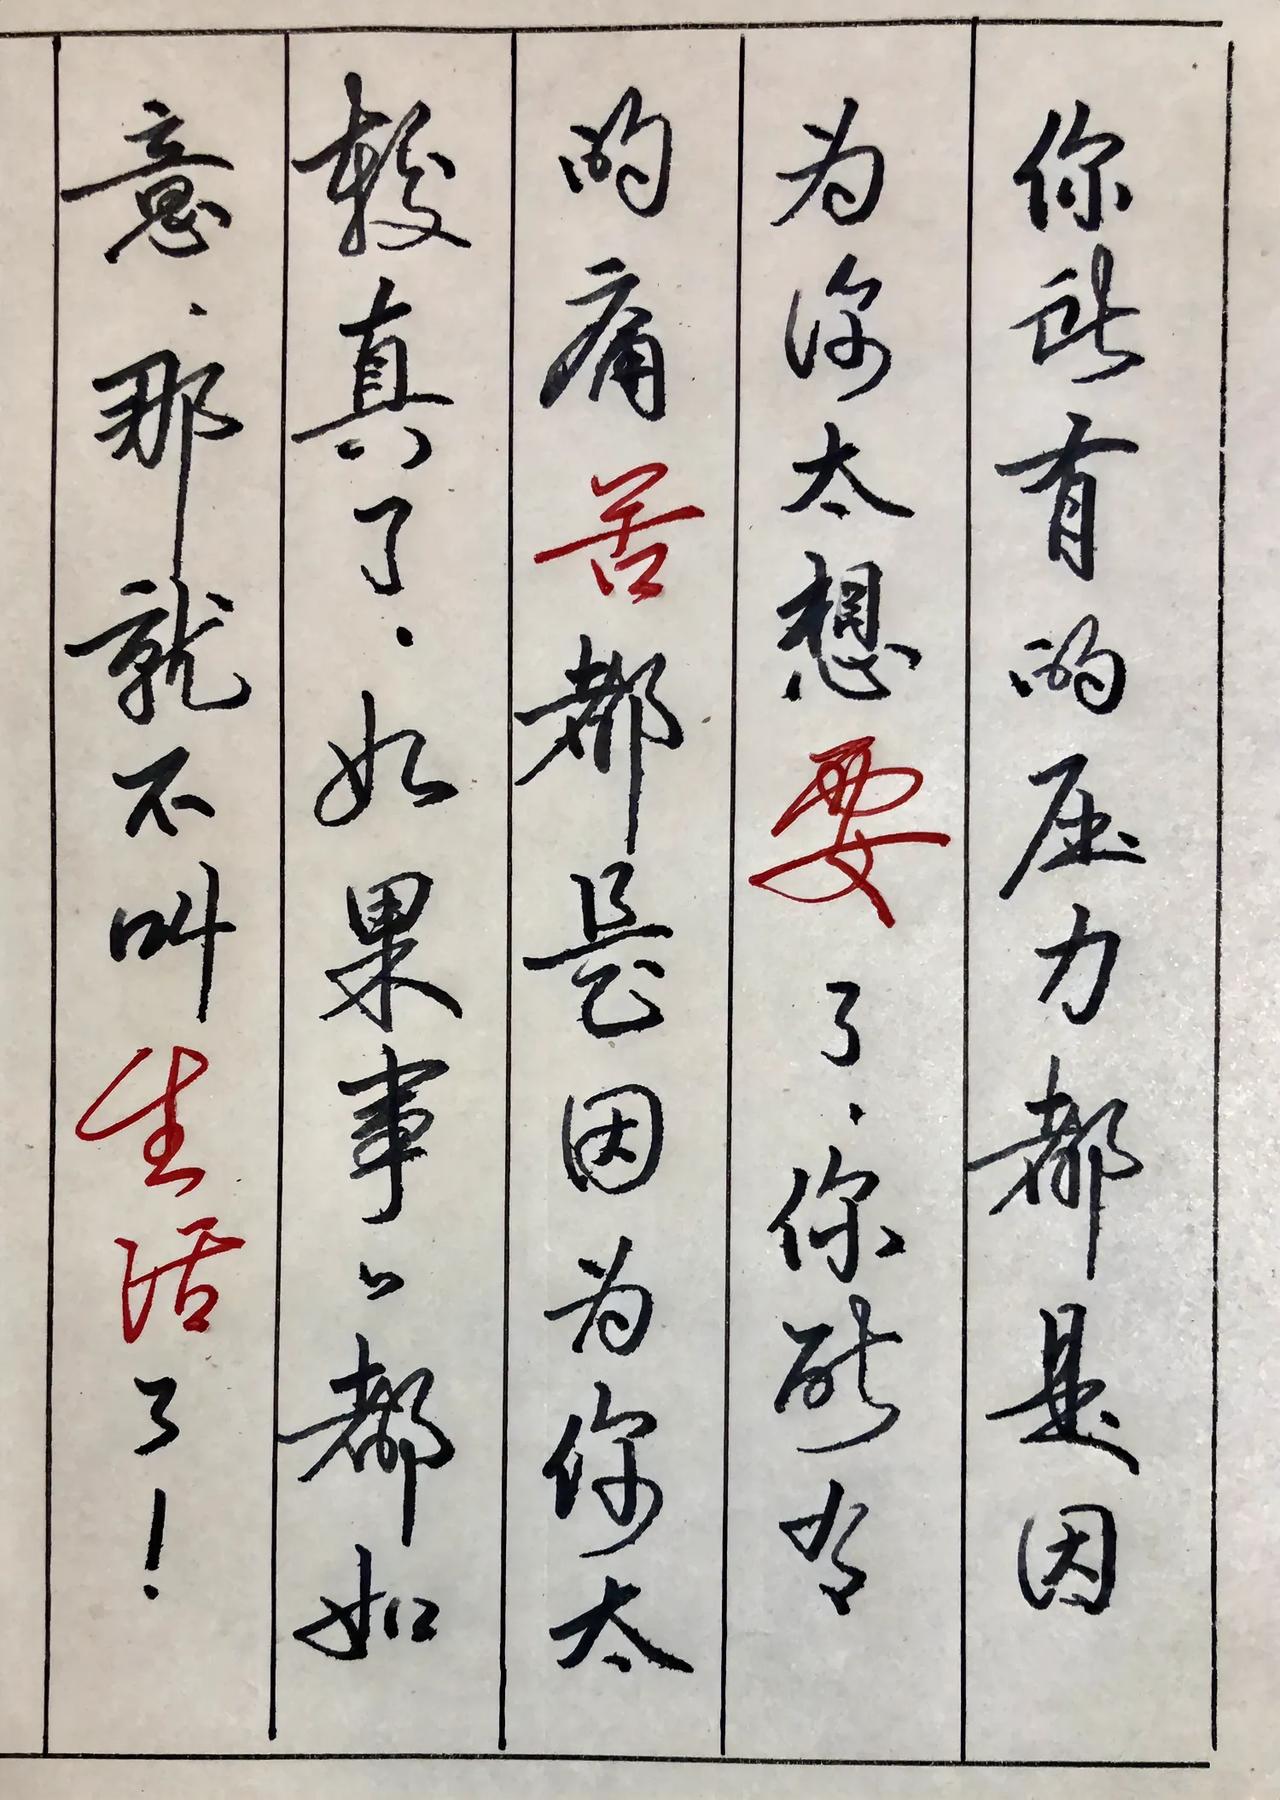 你所有的压力都是因
为你太想要了.你所有
的痛苦都是因为你太
较真了.如果事〻都如
意.那就不叫生活了!